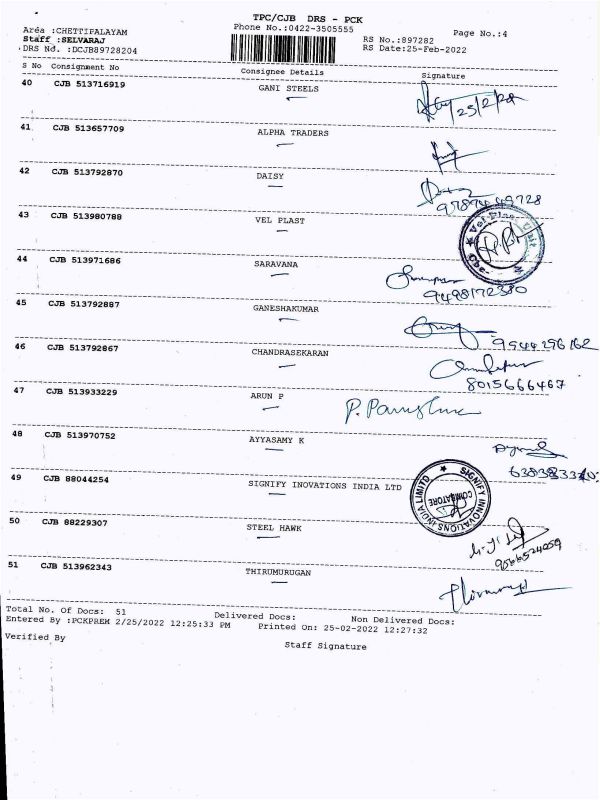 TPC/CJB DRS - PCK
Area :CHETTIPALAYAM
Phone No.:0422-3505555
Page No.:4
Staff :SELVARAJ
RS No.:897282
DRS No. :DCJB89728204
RS Date:25-Feb-2022
S No Consignment No Consignee Details Signature
40 CJB 513716919 GANI STEELS
25/2/22
41 CJB 513657709 ALPHA TRADERS
42 CJB 513792870 DAISY
43 CJB 513980788 VEL PLAST
Vel Plas
Cbe.
44 CJB 513971686 SARAVANA
9498172380
45 CJB 513792887 GANESHAKUMAR
9944296162
46 CJB 513792867 CHANDRASEKARAN
8015666467
47 CJB 513933229 ARUN P
48 CJB 513970752 AYYASAMY K
49 CJB 88044254 SIGNIFY INOVATIONS INDIA LTD
SIGNIFY INNOVATIONS INDIA LIMITED
COIMBATORE
50 CJB 88229307 STEEL HAWK
9566524059
51 CJB 513962343 THIRUMURUGAN
Total No. Of Docs: 51 Delivered Docs: Non Delivered Docs:
Entered By :PCKPREM 2/25/2022 12:25:33 PM Printed On: 25-02-2022 12:27:32
Verified By
Staff Signature